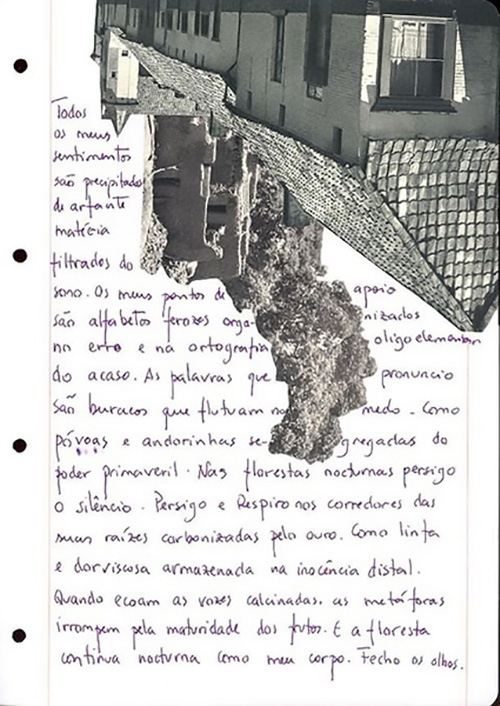 Todos
os meus
sentimentos
são precipitados
de arfante
matéria
filtrados do
sono. Os meus pontos de apoio
são alfabetos ferozes orga- nizados
no erro e na ortografia oligoelementar
do acaso. As palavras que pronuncio
são buracos que flutuam no medo. Como
póvoas e andorinhas se- gregadas do
poder primaveril. Nas florestas nocturnas persigo
o silêncio. Persigo e Respiro nos corredores das
suas raízes carbonizadas pelo ouro. Como linfa
e dor viscosa armazenada na inocência distal.
Quando ecoam as vozes calcinadas. as metáforas
irrompem pela maturidade dos frutos. E a floresta
continua nocturna como meu corpo. Fecho os olhos.